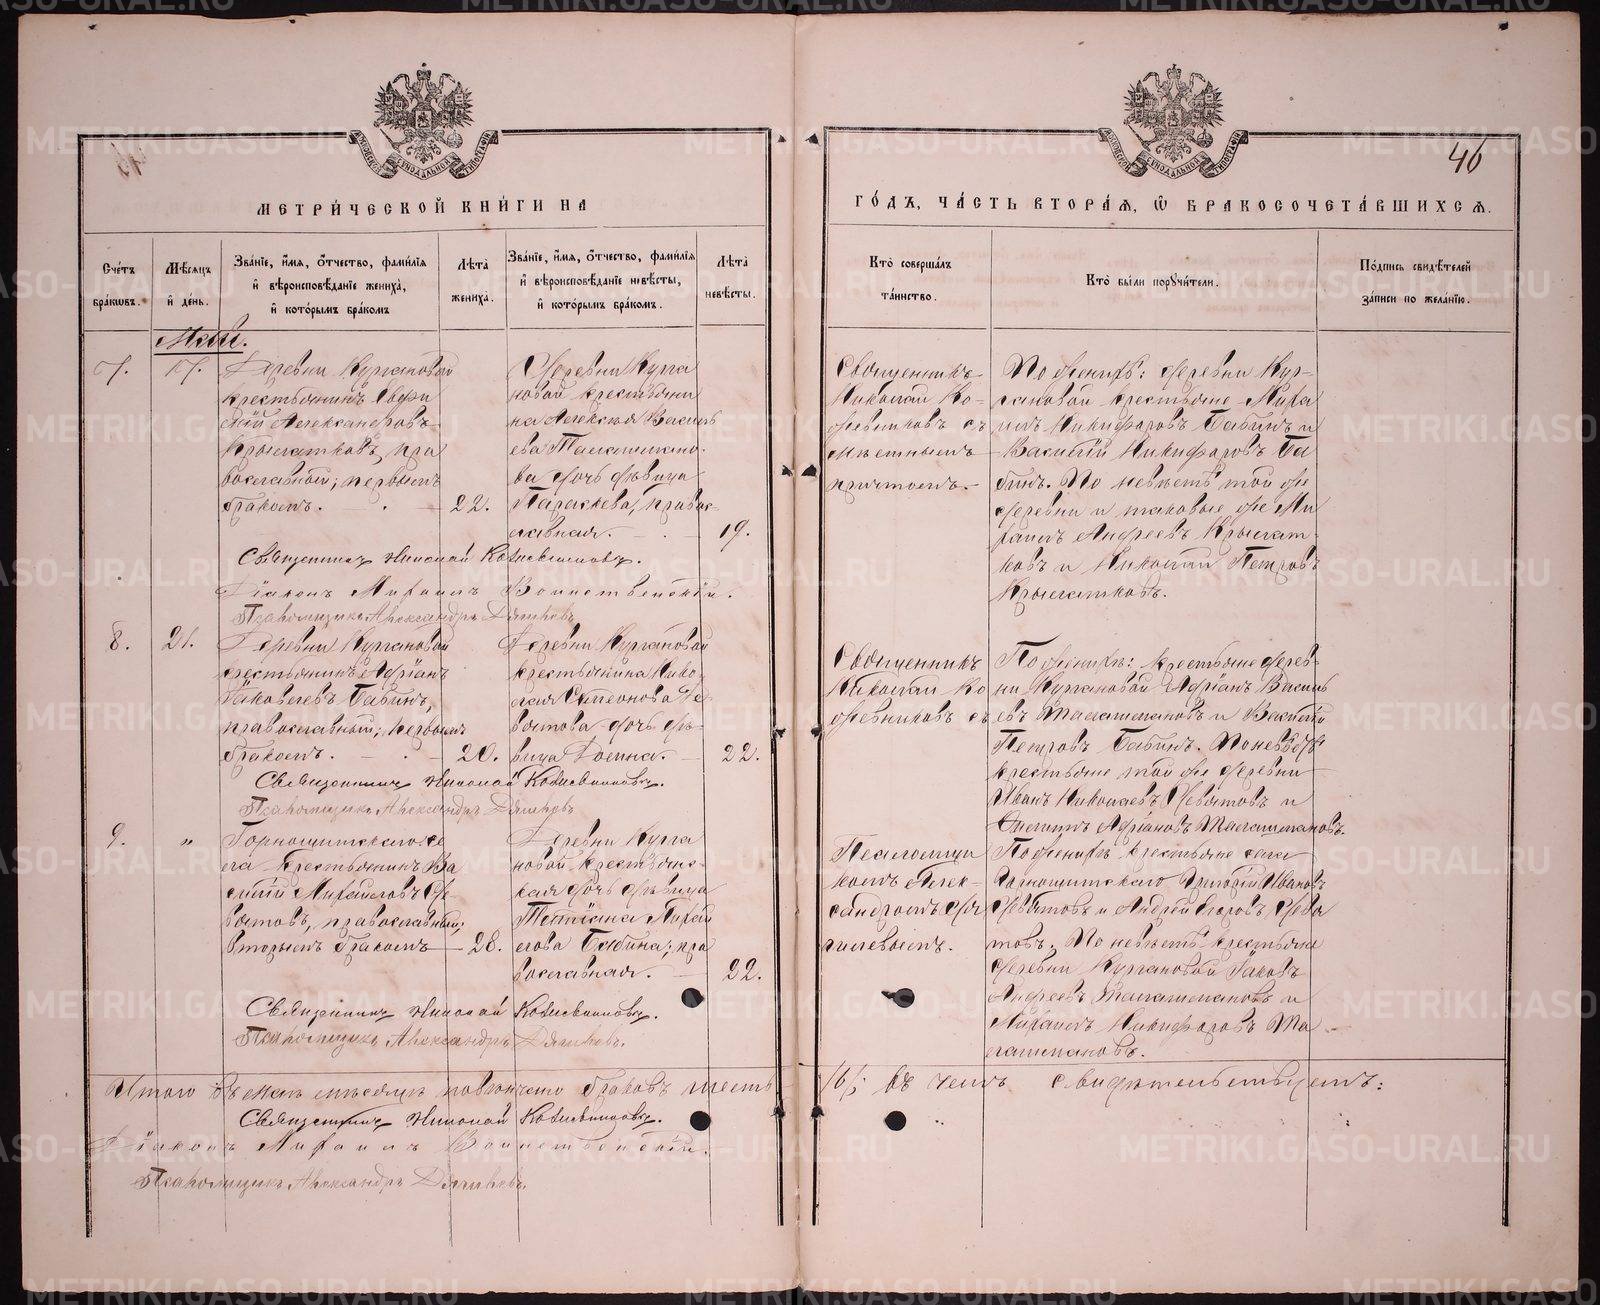 МЕТРИ́ЧЕСКОЙ КНИ́ГИ НА
ГО́ДЪ, ЧА́СТЬ ВТОРА́Я, Ѿ БРАКОСОЧЕТА́ВШИХСЯ.
46
Сче́тъ бра́кѡвъ.
Мѣ́сяцъ и҆ де́нь.
Зва́нїе, и҆́мя, ѻ҆́тчество, фами́лїя и҆ вѣроисповѣ́данїе жениха̀, и҆ кото́рымъ бра́комъ
Лѣ́та жениха̀.
Зва́нїе, и҆́мя, ѻ҆́тчество, фами́лїя и҆ вѣроисповѣ́данїе невѣ́сты, и҆ кото́рымъ бра́комъ.
Лѣ́та невѣ́сты.
Кто̀ соверша́лъ та́инство.
Кто̀ бы́ли порꙋчи́тели.
По́дпись свидѣ́телей за́писи по жела́нїю.
Май.
7.
17.
Деревни Кургановой
крестьянинъ Евфи
мій Александровъ
Крылатковъ, пра
вославный; первымъ
бракомъ.
22.
Деревни Курга
новой крестьяни
на Алексѣя Василь
ева Талашмано-
ва дочь дѣвица
Параскева, правос-
лавная.
19.
Священникъ
Николай Ко-
жевниковъ съ
мѣстнымъ
причтомъ.
По женихѣ: деревни Кур-
гановой крестьяне Миха
илъ Никифоровъ Бабинъ и
Василій Никифоровъ Ба
бинъ. По невѣстѣ той же
деревни и таковые же Ми
хаилъ Андреевъ Крылат-
ковъ и Никонъ Петровъ
Крылатковъ.
Священникъ Николай Кожевниковъ.
Діаконъ Михаилъ Воинственскій.
Псаломщикъ Александръ Дягилевъ
8.
21.
Деревни Кургановой
крестьянинъ Адріанъ
Іаковлевъ Бабинъ,
православный; первымъ
бракомъ.
20.
Деревни Кургановой
крестьянина Нико-
лая Симеонова Де-
вятова дочь дѣ-
вица Домна.
22.
Священникъ
Николай Ко
жевниковъ съ
По женихѣ: крестьяне дерев-
ни Кургановой Адріанъ Василь
евъ Талашмановъ и Василій
Петровъ Бабинъ. По невѣстѣ
крестьяне той же деревни
Иванъ Николаевъ Девятовъ и
Адріановъ Талашмановъ.
Священникъ Николай Кожевниковъ.
Псаломщикъ Александръ Дягилевъ
9.
"
Горнощитскаго се
ла крестьянинъ Ва
силій Михайловъ Де-
вятовъ, православный;
вторымъ бракомъ
28.
Деревни Курга
новой крестьянс-
кая дочь дѣвица
Татіана Михай
лова Бабина; пра
вославная.
22.
Псаломщи
комъ Алек-
сандромъ Дя
гилевымъ.
По женихѣ крестьяне села
Горнощитскаго Григорій Ивановъ
Девятовъ и Андрей Егоровъ Девя
товъ. По невѣстѣ крестьяне
деревни Кургановой Іаковъ
Андреевъ Талашмановъ и
Михаилъ Никифоровъ Та-
лашмановъ.
Священникъ Николай Кожевниковъ.
Псаломщикъ Александръ Дягилевъ.
Итого въ маѣ мѣсяцѣ повѣнчано браковъ шесть /6/; въ чемъ свидѣтельствуемъ:
Священникъ Николай Кожевниковъ.
Діаконъ Михаилъ Воинственскій.
Псаломщикъ Александръ Дягилевъ.
METRIKI.GASO-URAL.RU